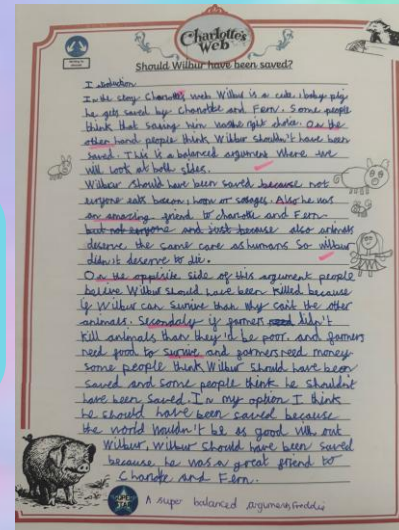 Charlotte's
Web
Should Wilbur have been saved?
In the story Charlottes web Wilbur is a cute, baby pig
he gets saved by Charlotte and Fern. Some people
think that saving him was the right choice. On the
other hand people think Wilbur shouldn't have been
saved. This is a balanced argument where we
will look at both sides.
Wilbur should have been saved because not
everyone eats bacon, ham or Also he was
an amazing friend to and Fern
but not everyone and just because also animals
deserve the same care as humans so wilbur
didn't deserve to die.
On the opposite side of this argument people
Wilbur should have been killed because
if Wilbur can survive than why can't the other
animals. Secondaly if farmers didn't
kill animals than they'd be poor. and farmers
need food to survive and farmers need money.
some people think Wilbur should have been
saved and some people think he shouldn't
have been saved. In my option I think
he should have been saved because
the world wouldn't be as good with out
Wilbur. Wilbur should have been saved
because he was a great friend to
and Fern.
A super balanced argument Freddie